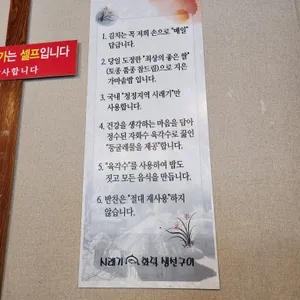 가는 셀프입니다
사합니다
1. 김치는 꼭 저희 손으로 "매일"
담급니다.
2. 당일 도정한 "최상의 좋은 쌀"
(토종 품종 참드림)으로 지은
가마솥밥 입니다.
3. 국내 "청정지역 시래기"만
사용합니다.
4. 건강을 생각하는 마음을 담아
정수된 자화수 육각수로 끓인
"둥굴레물을 제공"합니다.
5. "육각수"를 사용하여 밥도
짓고 모든 음식을 만듭니다.
6. 반찬은 "절대 재사용"하지
않습니다.
시래기 화덕 생선구이